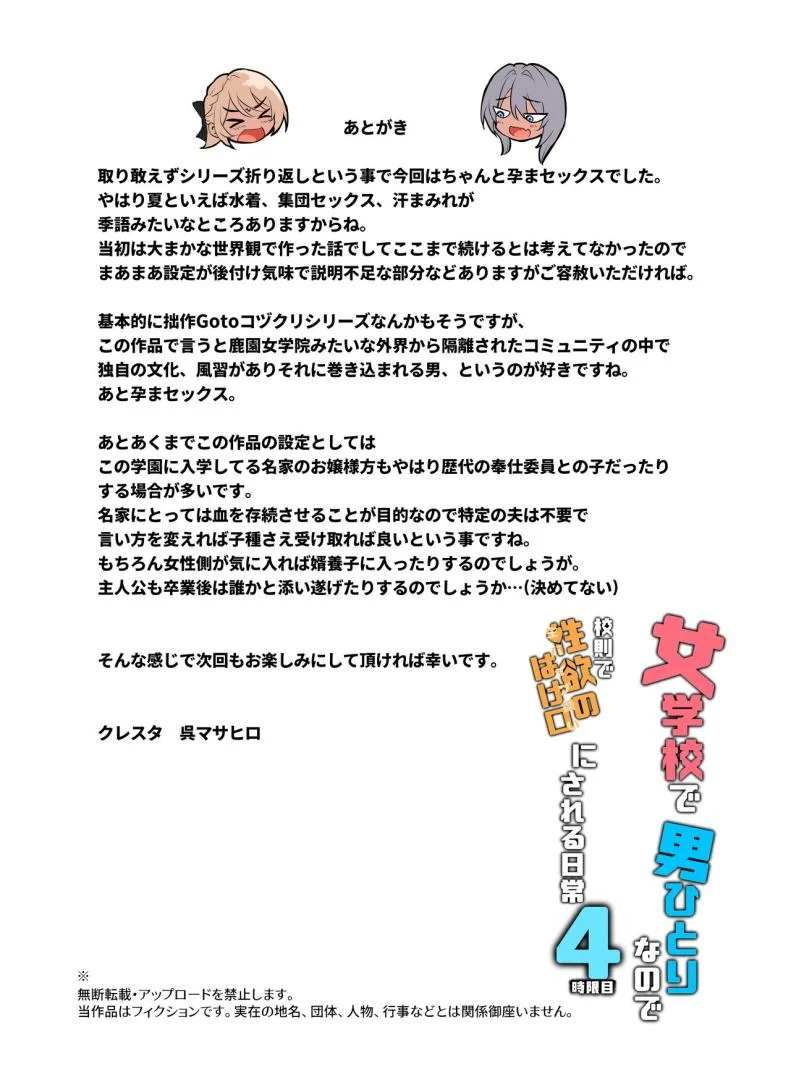 あとがき
取り敢えずシリーズ折り返しという事で今回はちゃんと孕まセックスでした。
やはり夏といえば水着、集団セックス、汗まみれが
季語みたいなところありますからね。
当初は大まかな世界観で作った話でしてここまで続けるとは考えてなかったので
まあまあ設定が後付け気味で説明不足な部分などありますがご容赦いただければ。
基本的に拙作Gotoコヅクリシリーズなんかもそうですが、
この作品で言うと鹿園女学院みたいな外界から隔離されたコミュニティの中で
独自の文化、風習がありそれに巻き込まれる男、というのが好きですね。
あと孕まセックス。
あとあくまでこの作品の設定としては
この学園に入学してる名家のお嬢様方もやはり歴代の奉仕委員との子だったり
する場合が多いです。
名家にとっては血を存続させることが目的なので特定の夫は不要で
言い方を変えれば子種さえ受け取れば良いという事ですね。
もちろん女性側が気に入れば婿養子に入ったりするのでしょうが。
主人公も卒業後は誰かと添い遂げたりするのでしょうか…(決めてない)
そんな感じで次回もお楽しみにして頂ければ幸いです。
クレスタ　呉マサヒロ
女学校で
男ひとり
なので
校則で
性欲の
はけ口
にされる日常
4
時限目
※
無断転載・アップロードを禁止します。
当作品はフィクションです。実在の地名、団体、人物、行事などとは関係御座いません。